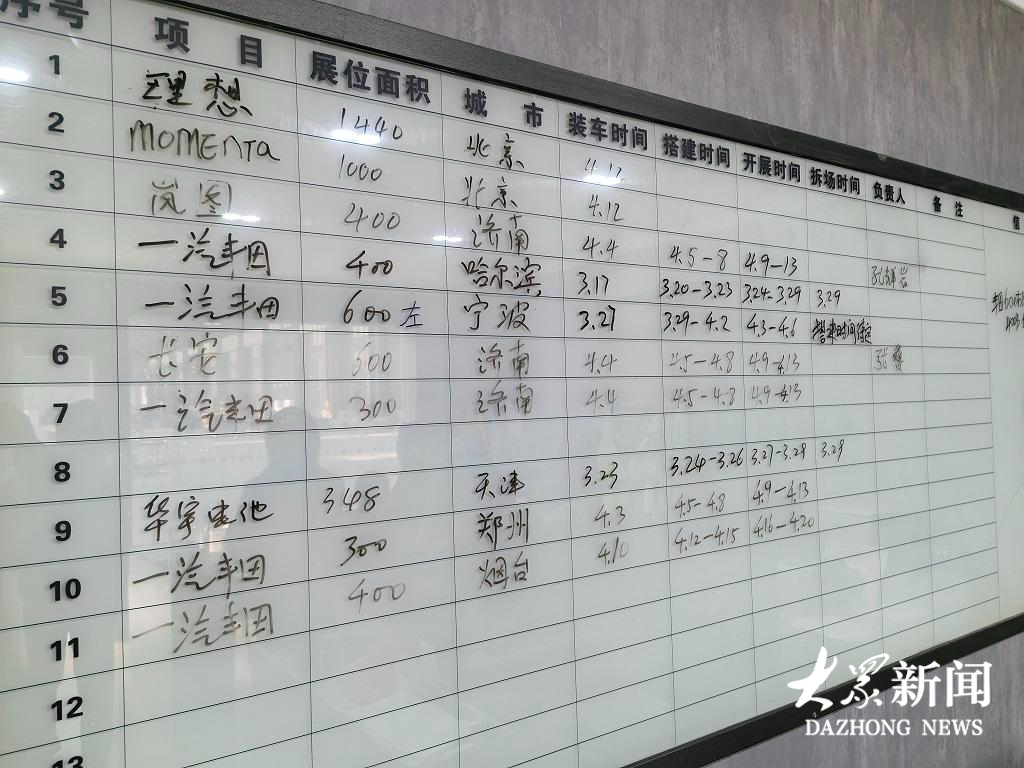 序号 项目 展位面积 城市 装车时间 搭建时间 开展时间 拆场时间 负责人 备注 值
1 理想 1440 北京
2 MOMENTA 1000 北京 4.12
3 岚图 400 济南 4.4 4.5-8 4.9-13
4 一汽丰田 400 哈尔滨 3.17 3.20-3.23 3.24-3.29 3.29
5 一汽丰田 600左 宁波 3.27 3.29-4.2 4.3-4.6
6 长安 600 济南 4.4 4.5-4.8 4.9-4.13
7 一汽丰田 300 济南 4.4 4.5-4.8 4.9-4.13
8 华宇电池 348 天津 3.23 3.24-3.26 3.27-3.29 3.29
9 一汽丰田 300 郑州 4.3 4.5-4.8 4.9-4.13
10 一汽丰田 400 烟台 4.10 4.12-4.15 4.16-4.20
11
12
13
大众新闻
DAZHONG NEWS